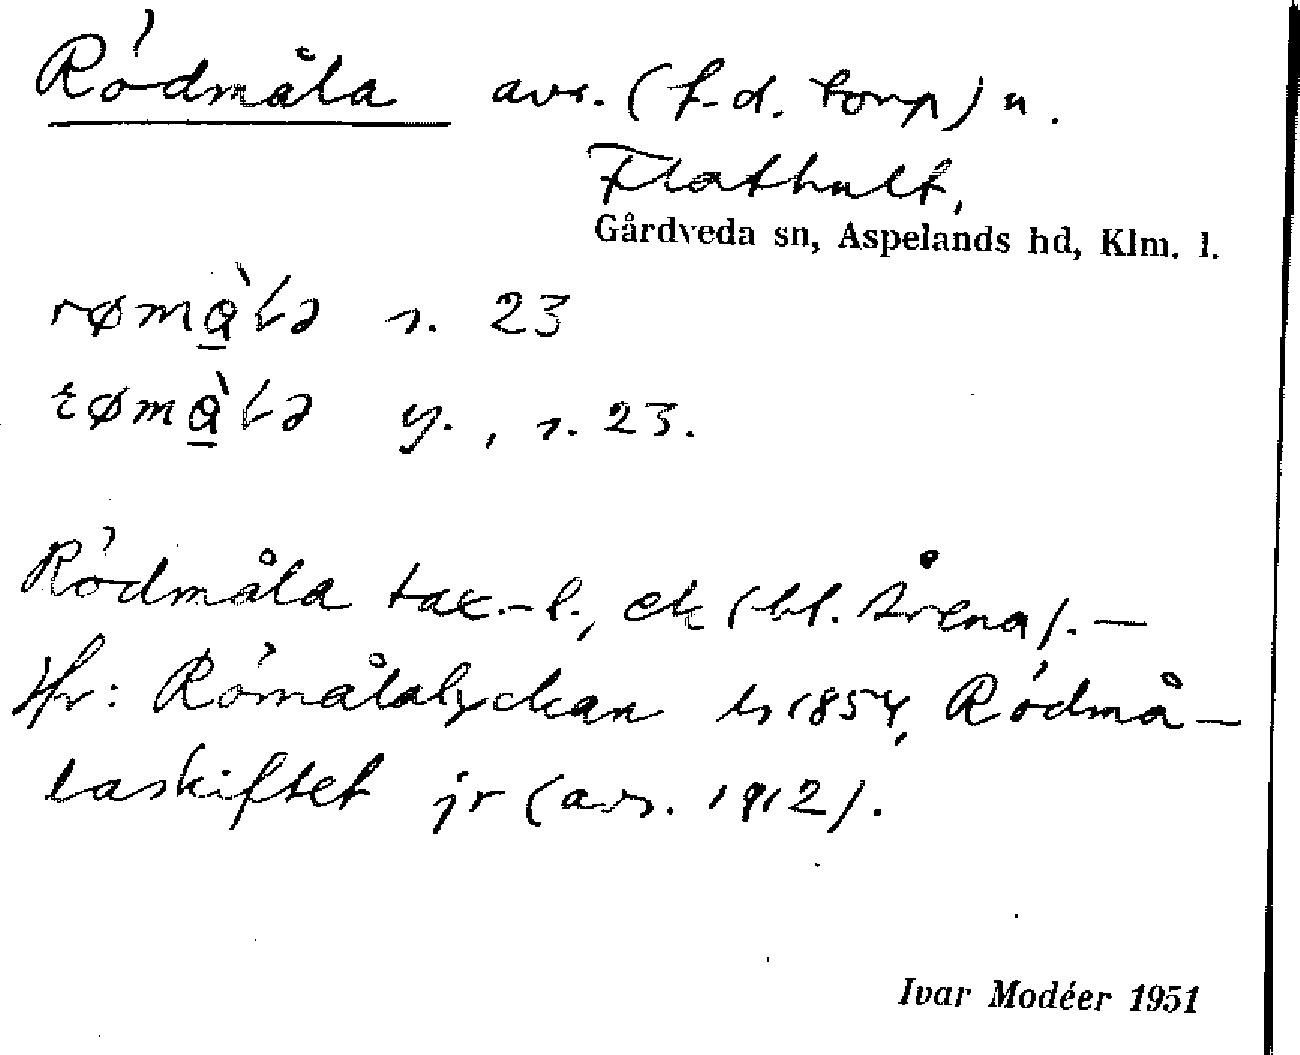 Rödmåla avs. (f.d. torp) u.
Flathult,
Gårdveda sn, Aspelands hd, Klm. l.
rømą̀lə s. 23
ɛømą̀lə y., s. 23.
Rödmåla tax.-l., ek (bl. Årena). —
Hfr: Römålalyckan ls 1854, Rödmå-
laskiftet jr (avs. 1912).
Ivar Modéer 1951